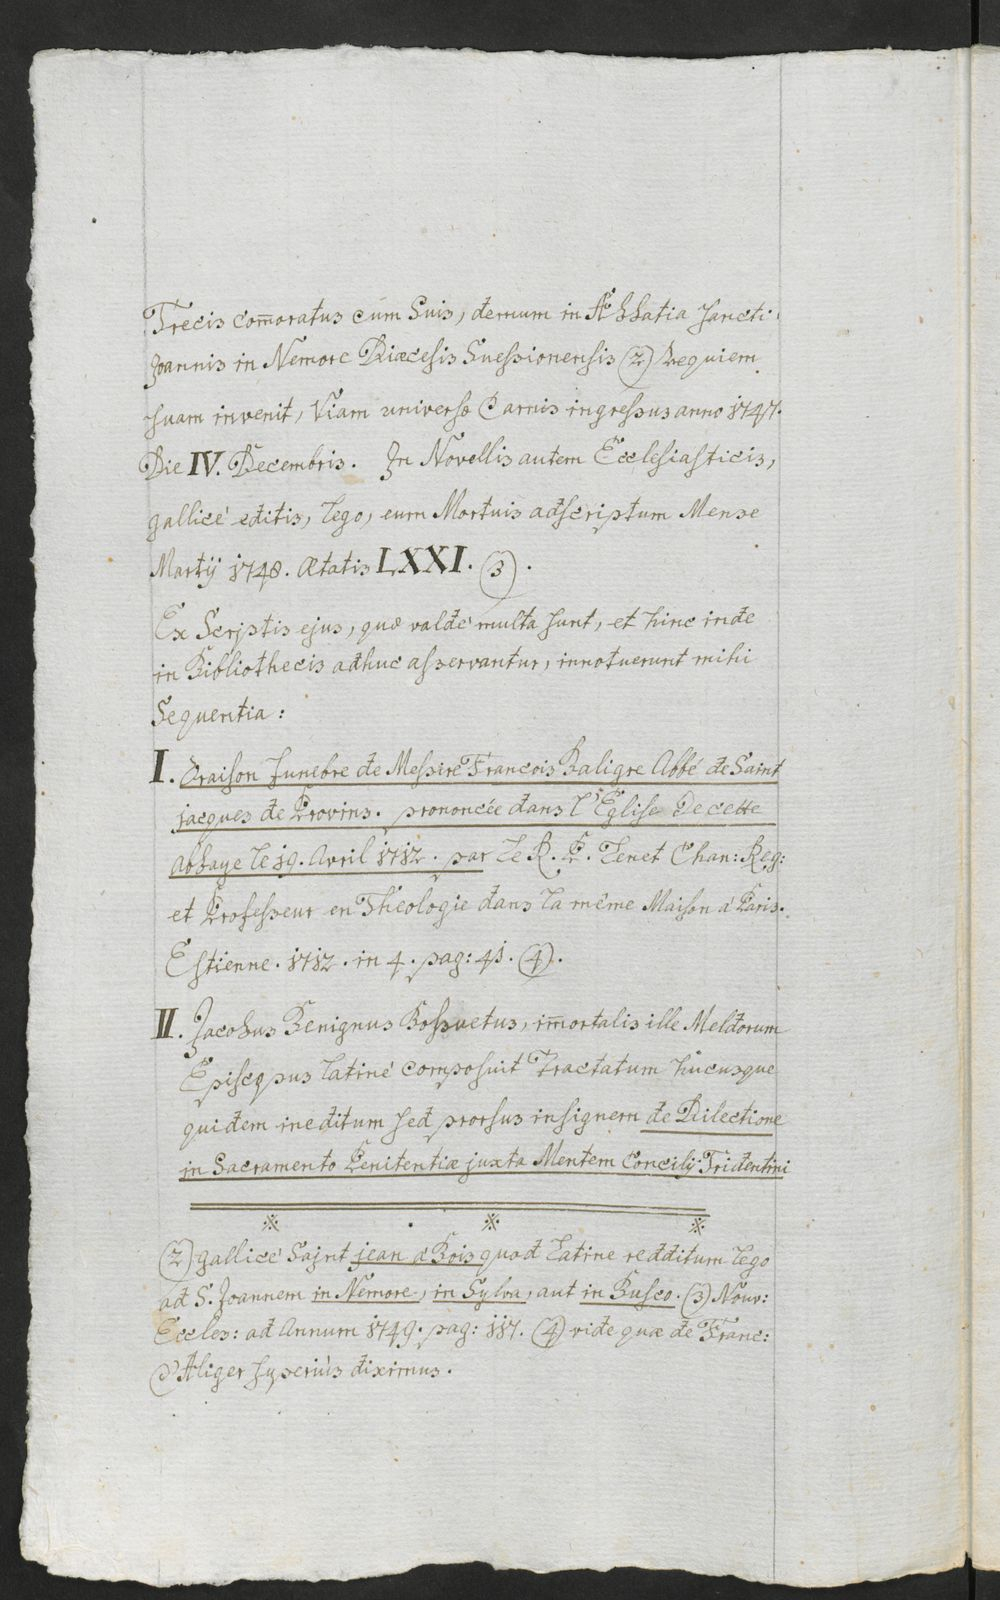 Trecis com̄oratus cum Suis, demum in Abbatia Sancti
Joannis in Nemore Diæcesis Suessionensis (2) Requiem
suam invenit, Viam universæ Carnis ingressus anno 1747.
Die IV. Decembris. In Novellis autem Ecclesiasticis,
gallicé editis, lego, eum Mortuis adscriptum Mense
Martij 1748. Ætatis LXXI. (3).
Ex Scriptis ejus, quæ valde multa sunt, et hinc inde
in Bibliothecis adhuc asservantur, innotuerunt mihi
Sequentia:
I. Oraison funebre de Messire Francois Daligre Abbé de Saint
jacques de Provins. prononcée dans l'Eglise De cette
abbaye le 19. Avril 1712. par le R. P. Lenet Chan: Reg:
et Professeur en Theologie dans la même Maison á Paris.
Estienne. 1712. in 4. pag: 41. (4).
II. Jacobus Benignus Bossuetus, im̄ortalis ille Meldorum
Episcopus latiné composuit Tractatum hucusque
quidem ineditum sed prorsus insignem de Dilectione
in Sacramento Penitentiæ juxta Mentem Concilij Tridentini
(2) gallicé Saint jean á Bois quod Latine redditum lego
ad S. Joannem in Nemore, in Sylva, aut in Busco. (3) Nouv:
Eccles: ad Annum 1749. pag: 117. (4) vide quæ de Franc:
D'Aliger superiús diximus.